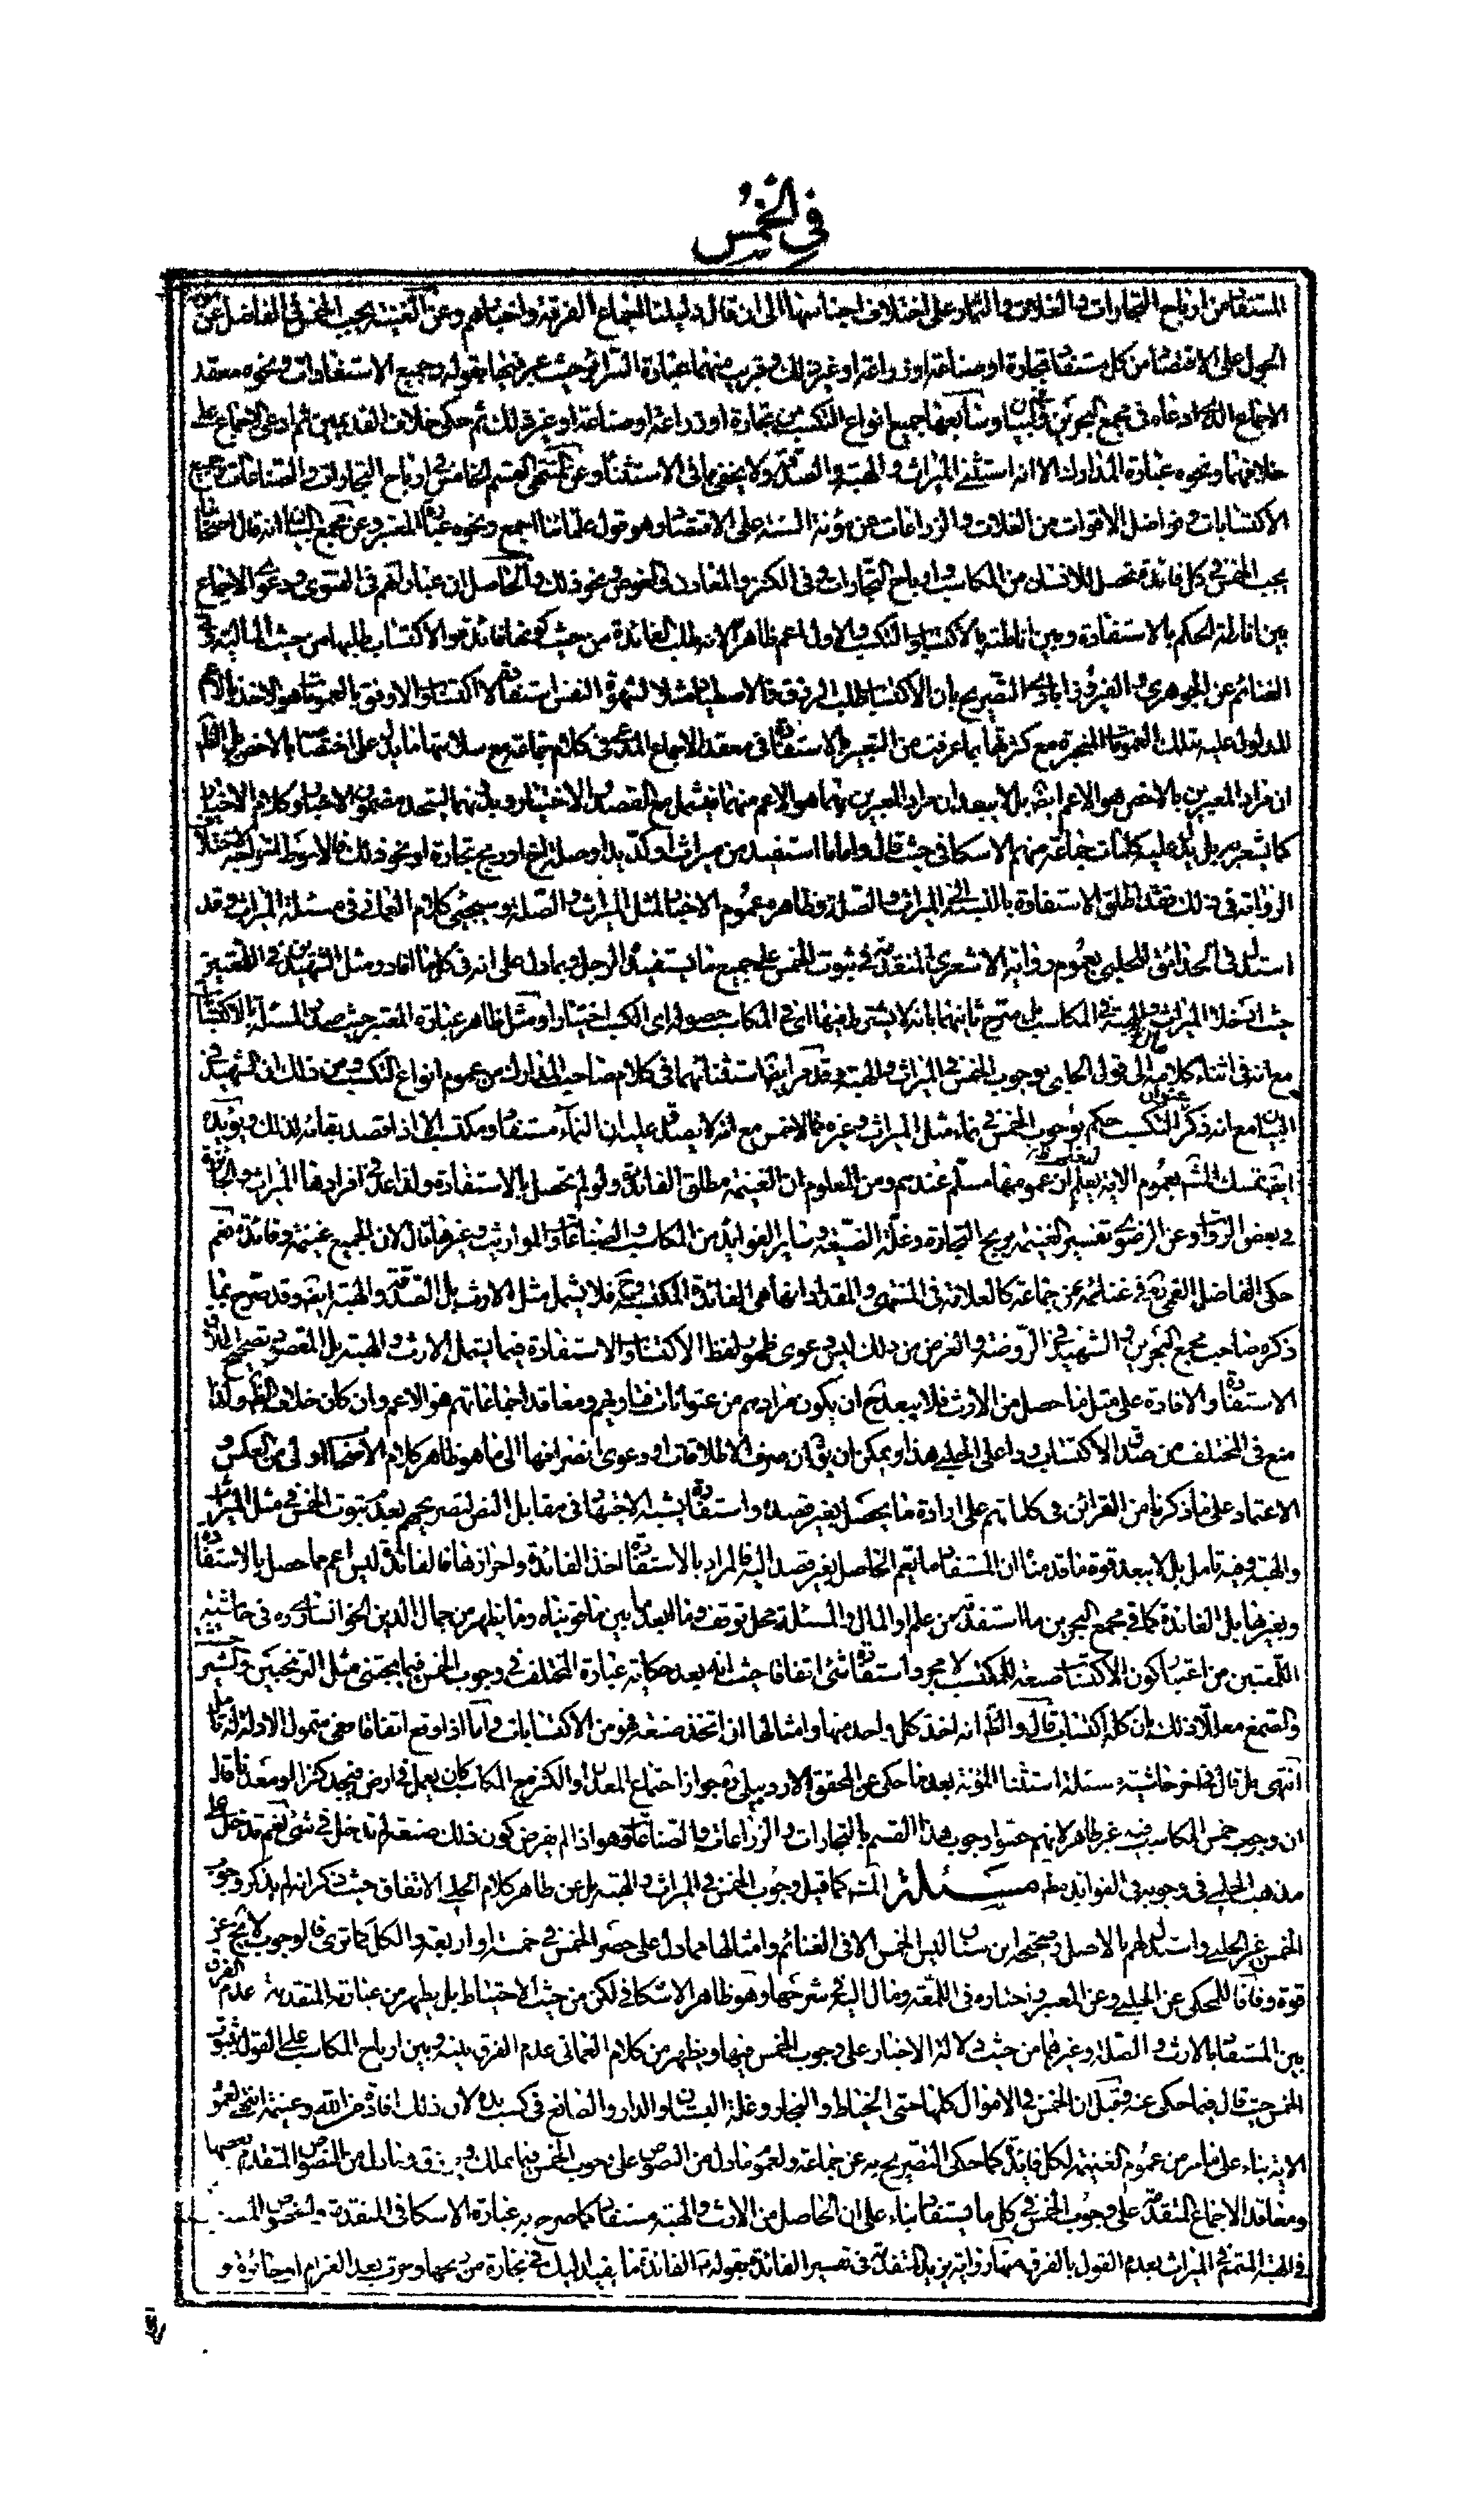 في الخمس
المستفاد من ارباح التجارات والغلات والثمار على اختلاف اجناسها الى ان قال دليلنا اجماع الفرقة واخبارهم وعن الغنية يجب الخمس في الفاضل عن مؤنة
الحول على الاقتصاد من كل مستفاد بتجارة او صناعة او زراعة او غير ذلك وقريب منهما عبارة السرائر حيث عبر فيها بقوله وجميع الاستفادات ونحوه معقد
الاجماع الذي ادعاه في مجمع البحرين وبينها جميع انواع التكسب من تجارة او زراعة او صناعة او غير ذلك ثم حكى خلاف القديمين ثم ادعى الاجماع على
خلافهما ونحوه عبارة المدارك الا انه استثنى الميراث والهبة والصدقة ولا يخفى ما في الاستثناء وعن المنتهى القسم الخامس ارباح التجارات والصناعات وجميع
الاكتسابات وفواضل الاقوات من الغلات والزراعات عن مؤنة السنة على الاقتصاد وهو قول علمائنا اجمع ونحوه عبارة المعتبر وعن مجمع البيان انه قال اصحابنا
يجب الخمس في كل فائدة تحصل للانسان من المكاسب وارباح التجارات وفي الكنوز والمعادن والغوص ونحو ذلك والحاصل ان عباراتهم في الفتوى ودعوى الاجماع
بين اناطة الحكم بالاستفادة وبين اناطته بالاكتساب او التكسب والاول اعم ظاهرا لانه طلب الفائدة من حيث كونها فائدة والاكتساب طلبها من حيث المالية وفي
الغنائم عن الجوهري والفيروزابادي التصريح بان الاكتساب طلب الرزق فالاصطياد مثلا لشهوة النفس استفادة لا اكتساب والاوفق بالعمومات هو الاخذ بالاعم
للمدلول عليه بتلك العمومات المنجبرة مع كثرتها بما عرفت من التعبير بالاستفادة في معقد الاجماع المدعى في كلام جماعة مع سلامتها عما يدل على اختصاصها بالاخص بل الظاهر
ان مراد المعبرين بالاخص هو الاعم ايضا بل لا يبعد ان مراد المعبرين بهما هو الاعم منهما فيشمل مع القصد والاختيار وبدونهما ليتحد مضمون الاخبار وكلام الاخيار
كما يشعر به بل يدل عليه كلمات جماعة منهم الاسكافي حيث قال واما ما استفيد من ميراث او كد بدن او صلة اخ او ربح تجارة او نحو ذلك فالاحوط اخراجه لاختلاف
الرواية في ذلك فقد اطلق الاستفادة بالنسبة الى الميراث والصلة وظاهره عموم الاخبار لمثل الميراث والصلة وسيجيئ كلام العماني في مسئلة الميراث وقد
استدل في الحدائق للحلبي بعموم رواية الاشعري المتقدمة في ثبوت الخمس على جميع ما يستفيد الرجل وبما دل على انه في كل ما افاد ومثل الشهيدين في اللمعتين
حيث ادخلا الميراث والهبة في المكاسب بل صرح ثانيهما بانه لا يشترط فيها اي في المكاسب حصوله اي الكسب اختيارا ومثل ظاهر عبارة المعتبر حيث صدر المسئلة بالاكتساب
مع انه في اثناء كلامه مال الى قول الحلبي بوجوب الخمس في الميراث والهبة وقد مر ايضا استثنائهما في كلام صاحب المدارك من عموم انواع التكسب ومن ذلك ان الشهيد في
البيان مع انه ذكر عنوان التكسب حكم بوجوب الخمس في نماء مثل الميراث وغيره مما لا خمس مع انه لا يصدق عليه ان النماء مستفاد ومكتسب الا اذا قصد بقائه لذلك ويؤيده
ايضا تمسك الشهيد بعموم الاية يعلم ان عمومها مسلم عندهم ومن المعلوم ان الغنيمة مطلق الفائدة ولو لم تحصل بالاستفادة ولذا عد في افرادها الميراث والجائزة
في بعض الروايات وعن الرضوي تفسير الغنيمة بربح التجارة وغلة الضيعة وسائر الفوايد من المكاسب والصناعات والمواريث وغيرها قال لان الجميع غنيمة وفائدة نعم
حكى الفاضل القمي في غنائمه عن جماعة كالعلامة في المنتهى والمقداد انها هي الفائدة المكتسبة وح فلا يشمل مثل الارث بل الصدقة والهبة ايضا وقد صرح بما
ذكره صاحب مجمع البحرين والشهيد في الروضة والغرض من ذلك ليس دعوى ظهور لفظ الاكتساب والاستفادة فيما يشمل الارث والهبة بل المقصود تصحيح اطلاق
الاستفادة والافادة على مثل ما حصل من الارث فلا يبعد ح ان يكون مرادهم من عنوانات فتاويهم ومعاقد اجماعاتهم هو الاعم وان كان خلاف الظاهر ولذا
منع في المختلف من صدق الاكتساب ردا على الحلبي هذا ويمكن ان يق ان صرف الاطلاقات او دعوى انصرافها الى ما هو ظاهر كلام الاصحاب اولى من العكس و
الاعتماد على ما ذكرنا من القرائن في كلماتهم على ارادة ما يحصل بغير قصد واستفادة يشبه الاجتهاد في مقابل النص لتصريحهم بعدم ثبوت الخمس في مثل الميراث
والهبة وفيه تامل بل لا يبعد قوة ما قدمنا ان المستفاد ما يعم الحاصل بغير قصد اليه فالمراد بالاستفادة اخذ الفائدة واحرازها فالفائدة ليس اعم مما حصل بالاستفادة
وبغيرها بل الفائدة كما في مجمع البحرين ما استفدته من علم او المال والمسئلة محل توقف وما ابعد ما بين ما قويناه وما يظهر من جمال الدين الخوانساري ره في حاشية
اللمعتين من اعتبار كون الاكتساب صنعة للمكتسب لا مجرد استفادة شئ اتفاقا حيث انه بعد حكاية عبارة المختلف في وجوب الخمس فيما يجتنى مثل الترنجبين والشير خشت
والصمغ معللا ذلك بان كله اكتساب قال والظاهر انه اخذ كل واحد منها وامثالها ان اتخذ صنعة فهو من الاكتسابات واما اذا وقع اتفاقا ففي شمول الادلة له تامل
انتهى بل قال في اخر حاشية مسئلة استثناء المؤنة بعد ما حكى عن المحقق الاردبيلي ره جواز اجتماع المعدن والكنز مع المكاسب كان يعمل في ارض فيجد كنزا او معدنا قال
ان وجوب خمس المكاسب فيه غير ظاهر لانهم خصوا وجوب هذا القسم بالتجارات والزراعات والصناعات وهو اذا لم يفرض كون ذلك صنعة له لم تدخل في شئ نعم تدخل على
مذهب الحلبي في وجوبه في الفوايد مطلقا مسئلة المشهور كما قيل وجوب الخمس في الميراث والهبة بل عن ظاهر كلام الحلي الاتفاق حيث ذكر انه لم يذكر وجوب
الخمس غير الحلبي واستدل لهم بالاصل وصحيحة ابن سنان ليس الخمس الا في الغنائم وامثالها مما دل على حصر الخمس في خمسة او اربعة والكل كما ترى فالوجوب لا يخ عن
قوة وفاقا للمحكي عن الحلبي وعن المعتبر واختاره في اللمعة ومال اليه في شرحها وهو ظاهر الاسكافي لكن من حيث الاحتياط بل يظهر من عبارته المتقدمة عدم الفرق
بين المستفاد بالارث والصلة وغيرهما من حيث دلالة الاخبار على وجوب الخمس فيها ويظهر من كلام العماني عدم الفرق بينه وبين ارباح المكاسب على القول بثبوت
الخمس حيث قال فيما حكى عنه وقيل ان الخمس في الاموال كلها حتى الخياط والنجار وغلة البستان والدار والصانع في كسب يده لان ذلك افادة من الله وغنيمة انتهى لعموم
الاية بناء على ما مر من عموم الغنيمة لكل فائدة كما حكى التصريح به عن جماعة ولعموم ما دل من النصوص على وجوب الخمس فيما يملك ويرزق وما دل من النصوص المتقدم بعضها
ومعاقد الاجماع المتقدمة على وجوب الخمس في كل ما يستفاد بناء على ان الحاصل من الارث والهبة مستفاد كما صرح به عبارة الاسكافي المتقدمة ولخصوص
في الهبة المتمم في الميراث بعدم القول بالفرق منها رواية يزيد المتقدمة في تفسير الفائدة بقوله ع الفائدة مما يفيد اليك في تجارة من ربحها وحرث بعد الغرام او جائزة و